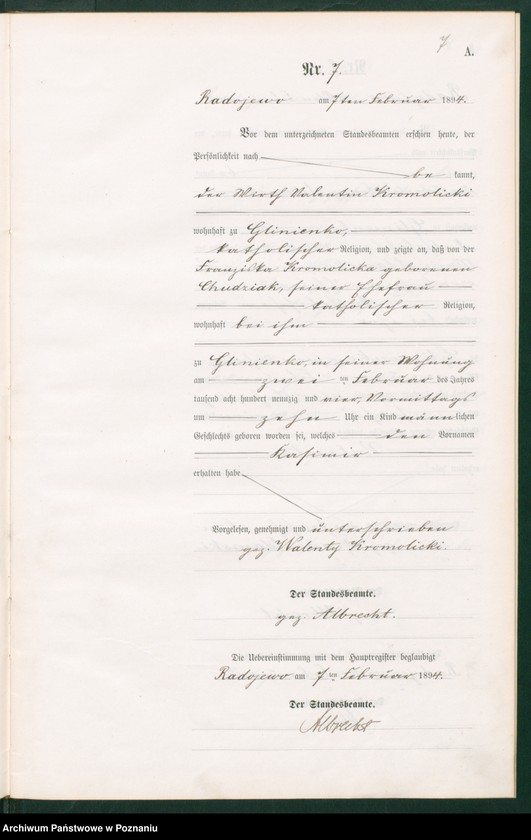 7
A.
Nr. 7.
Radojewo am 7ten Februar 1894.
Vor dem unterzeichneten Standesbeamten erschien heute, der
Persönlichkeit nach
be kannt,
der Wirth Valentin Kromolicki
wohnhaft zu Glinienko,
katholischer Religion, und zeigte an, daß von der
Franziska Kromolicka geborenen
Chudziak, seiner Ehefrau
katholischer Religion,
wohnhaft bei ihm
zu Glinienko, in seiner Wohnung
am zwei ten Februar des Jahres
tausend acht hundert neunzig und vier, Vormittags
um zehn Uhr ein Kind männlichen
Geschlechts geboren worden sei, welches den Vornamen
Kasimir
erhalten habe
Vorgelesen, genehmigt und unterschrieben
gez. Walenty Kromolicki.
Der Standesbeamte.
gez. Albrecht.
Die Uebereinstimmung mit dem Hauptregister beglaubigt
Radojewo am 7 ten Februar 1894.
Der Standesbeamte.
Albrecht
Archiwum Państwowe w Poznaniu